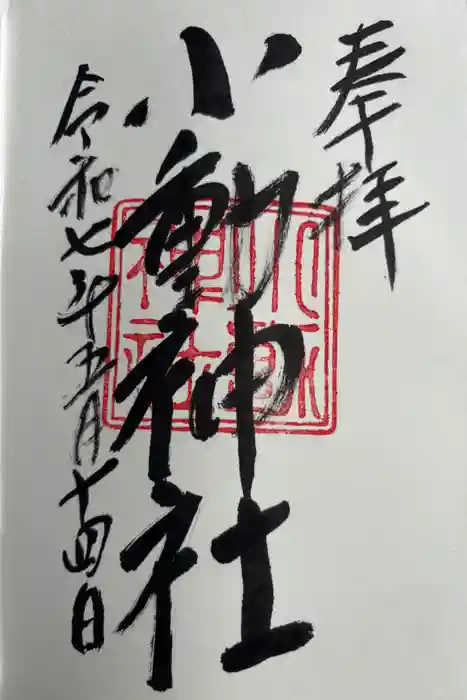 奉拝
小動神社
小動神社
令和七年五月十四日